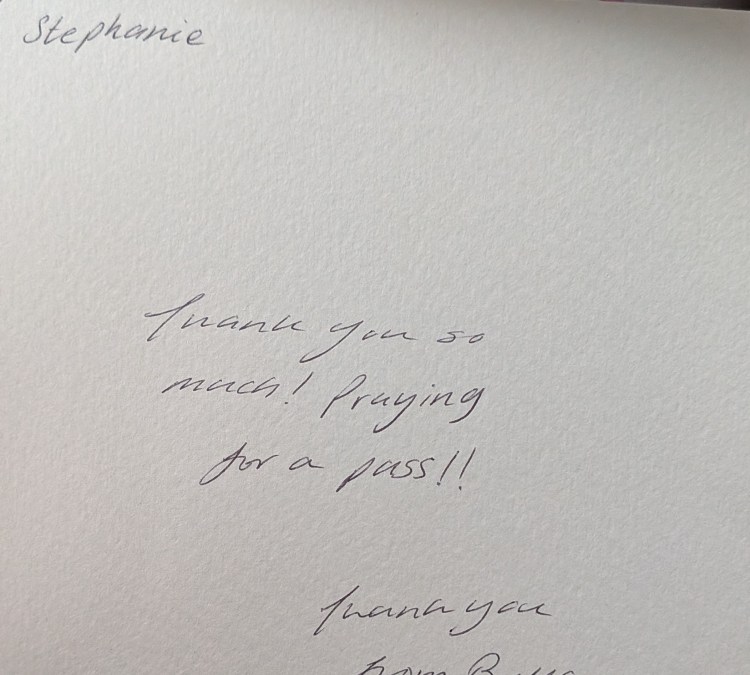 Stephanie
Thank you so
much! Praying
for a pass!!
Thank you
from